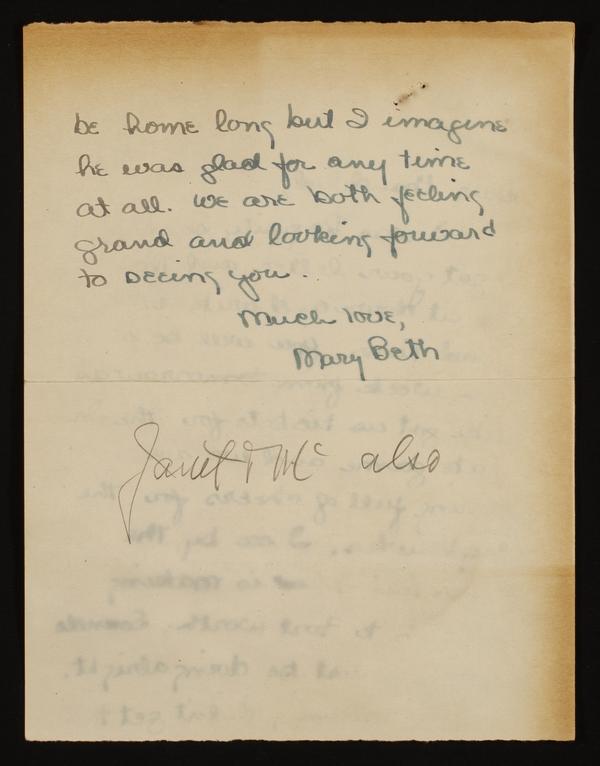 be home long but I imagine
he was glad for any time
at all. We are both feeling
grand and looking forward
to seeing you.
Much love,
Mary Beth
Janet & Mc also